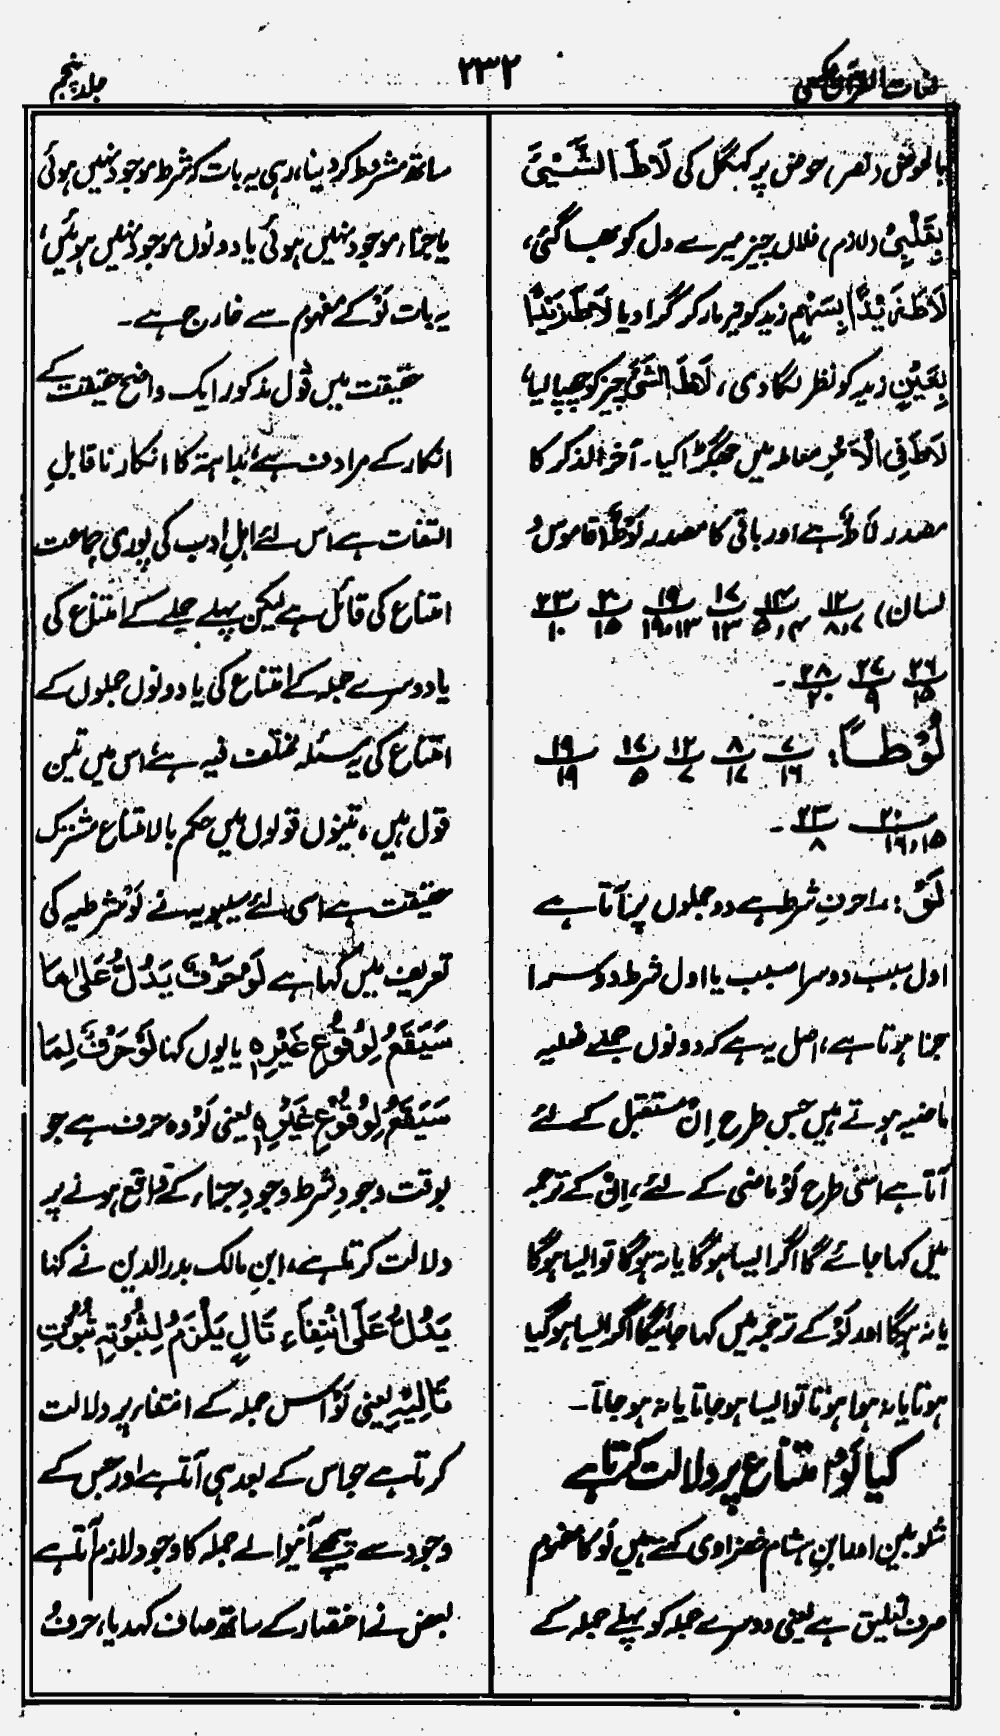 لغات القرآن مکمی
۲۳۲
جلد پنجم
بالحوض (نصر) حوض پر کہگل کی لَاطَ الشَّیْئُ
بِقَلْبِیْ (لازم) فلاں چیز میرے دل کو بھا گئی،
لَاطَ زَیْدًا بِسَہْمٍ زید کو تیر مار کر گرا دیا لَاطَ زَیْدًا
بِعَیْنٍ زید کو نظر لگا دی، لَاطَ الشَّئَ چیز کو چھپا لیا،
لَاطَ فِی الْاَمْرِ معاملہ میں جھگڑا کیا۔ آخر الذکر کا
مصدر لَاطٌ ہے اور باقی کا مصدر لَوْطٌ (قاموس و
لسان) ۱۲/۷،۸ ۱۴/۴،۵ ۱۷/۱۳ ۱۹/۱۳،۱۹ ۲۰/۱۵ ۲۳/۱۰
۲۶/۱۵ ۲۷/۹ ۲۸/۲۰ ۔
لُوْطاً: ۷/۱۶ ۸/۱۷ ۱۲/۷ ۱۷/۵ ۱۹/۱۹
۲۰/۱۵،۱۶ ۲۳/۸ ۔
لَوْ: ۱۔ حرفِ شرط ہے دو جملوں پر آتا ہے
اول سبب دوسرا مسبب یا اول شرط دوسرا
جزا ہوتا ہے، اصل یہ ہے کہ دونوں جملے فعلیہ
ماضیہ ہوتے ہیں جس طرح اِنْ مستقبل کے لئے
آتا ہے اسی طرح لَوْ ماضی کے لئے، اِنْ کے ترجمہ
میں کہا جائے گا اگر ایسا ہو گا یا نہ ہو گا تو ایسا ہو گا
یا نہ ہو گا اور لَوْ کے ترجمہ میں کہا جائیگا اگر ایسا ہو گیا
ہوتا یا نہ ہوا ہوتا تو ایسا ہو جاتا یا نہ ہو جاتا۔
کیا لَوْ امتناع پر دلالت کرتا ہے
شلوبین اور ابنِ ہشام خضراوی کہتے ہیں لَوْ کا مفہوم
صرف تعلیق ہے یعنی دوسرے جملہ کو پہلے جملہ کے
ساتھ مشروط کر دینا، رہی یہ بات کہ شرط موجود نہیں ہوئی
یا جزاء موجود نہیں ہوئی یا دونوں موجود نہیں ہوئیں،
یہ بات لَوْ کے مفہوم سے خارج ہے۔
حقیقت میں قول مذکور ایک واضح حقیقت کے
انکار کے مرادف ہے، بداہتہ کا انکار ناقابلِ
التفات ہے اس لئے اہلِ ادب کی پوری جماعت
امتناع کی قائل ہے لیکن پہلے جملے کے امتناع کی
یا دوسرے جملہ کے امتناع کی یا دونوں جملوں کے
امتناع کی یہ مسئلہ مختلف فیہ ہے، اس میں تین
قول ہیں، تینوں قولوں میں حکم بالامتناع مشترک
حقیقت ہے اسی لئے سیبویہ نے لَوْ شرطیہ کی
تعریف میں کہا ہے لَوْ حَرْفٌ یَدُلُّ عَلٰی مَا
سَیَقَعُ لِوُقُوْعِ غَیْرِہٖ یا یوں کہنا لَوْ حَرْفٌ لِمَا
سَیَقَعُ لِوُقُوْعِ غَیْرِہٖ یعنی لَوْ وہ حرف ہے جو
بوقت وجودِ شرط وجودِ جزاء کے واقع ہونے پر
دلالت کرتا ہے، ابنِ مالک بدرالدین نے کہا
یَدُلُّ عَلَی انْتِفَاءِ تَالٍ یَلْزَمُ لِثُبُوْتِہٖ ثُبُوْتِ
تَالِیْہِ یعنی لَوْ اس جملہ کے انتفاء پر دلالت
کرتا ہے جو اس کے بعد ہی آتا ہے اور جس کے
وجود سے پیچھے آنیوالے جملہ کا وجود لازم آتا ہے
بعض نے اختصار کے ساتھ صاف کہدیا، حرفُ